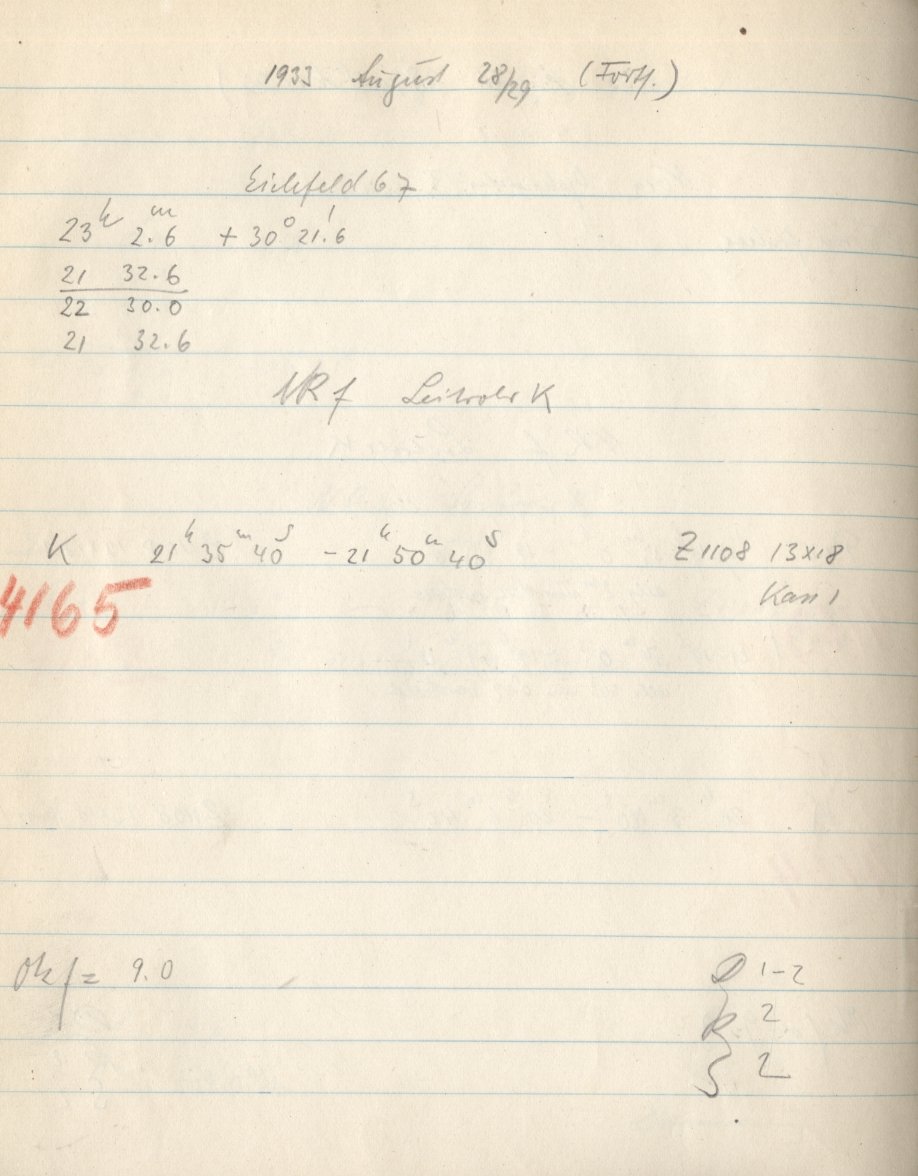 1933 August 28/29 (Fortf.)
Eichfeld 67
23h 2.6m + 30° 21.6'
21 32.6
22 30.0
21 32.6
Leitrohr K
K 21h 35m 40s - 21h 50m 40s Z 1108 13x18
4165 Kass 1
Ok f = 9.0 D 1-2
R 2
S 2